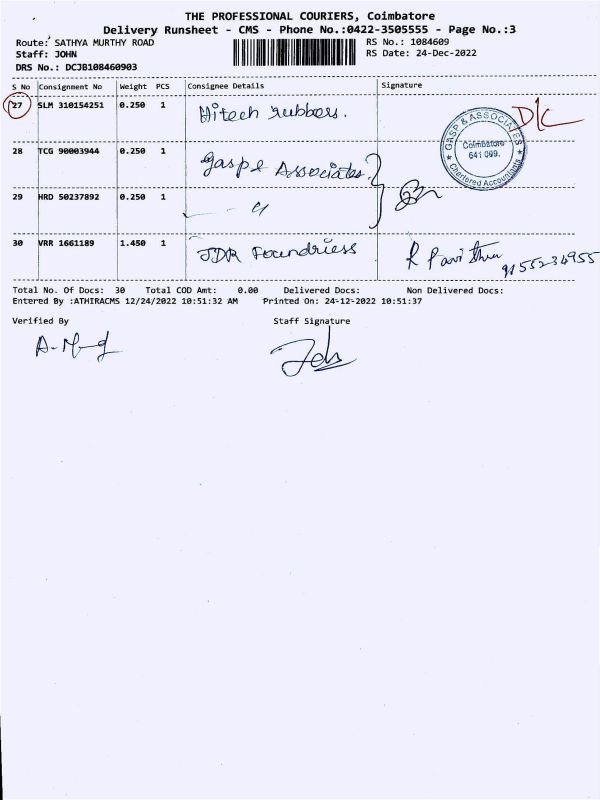 THE PROFESSIONAL COURIERS, Coimbatore
Delivery Runsheet - CMS - Phone No.:0422-3505555 - Page No.:3
Route: SATHYA MURTHY ROAD RS No.: 1084609
Staff: JOHN RS Date: 24-Dec-2022
DRS No.: DCJB108460903
S No Consignment No Weight PCS Consignee Details Signature
27 SLM 310154251 0.250 1 Hitech rubbers. D/C
GASP & ASSOCIATES
Coimbatore
641 009.
Chartered Accountants
28 TCG 90003944 0.250 1 Gaspe Associates.
29 HRD 50237892 0.250 1
30 VRR 1661189 1.450 1 JDR Foundriess R Pavithra
9155234955
Total No. Of Docs: 30 Total COD Amt: 0.00 Delivered Docs: Non Delivered Docs:
Entered By :ATHIRACMS 12/24/2022 10:51:32 AM Printed On: 24-12-2022 10:51:37
Verified By Staff Signature